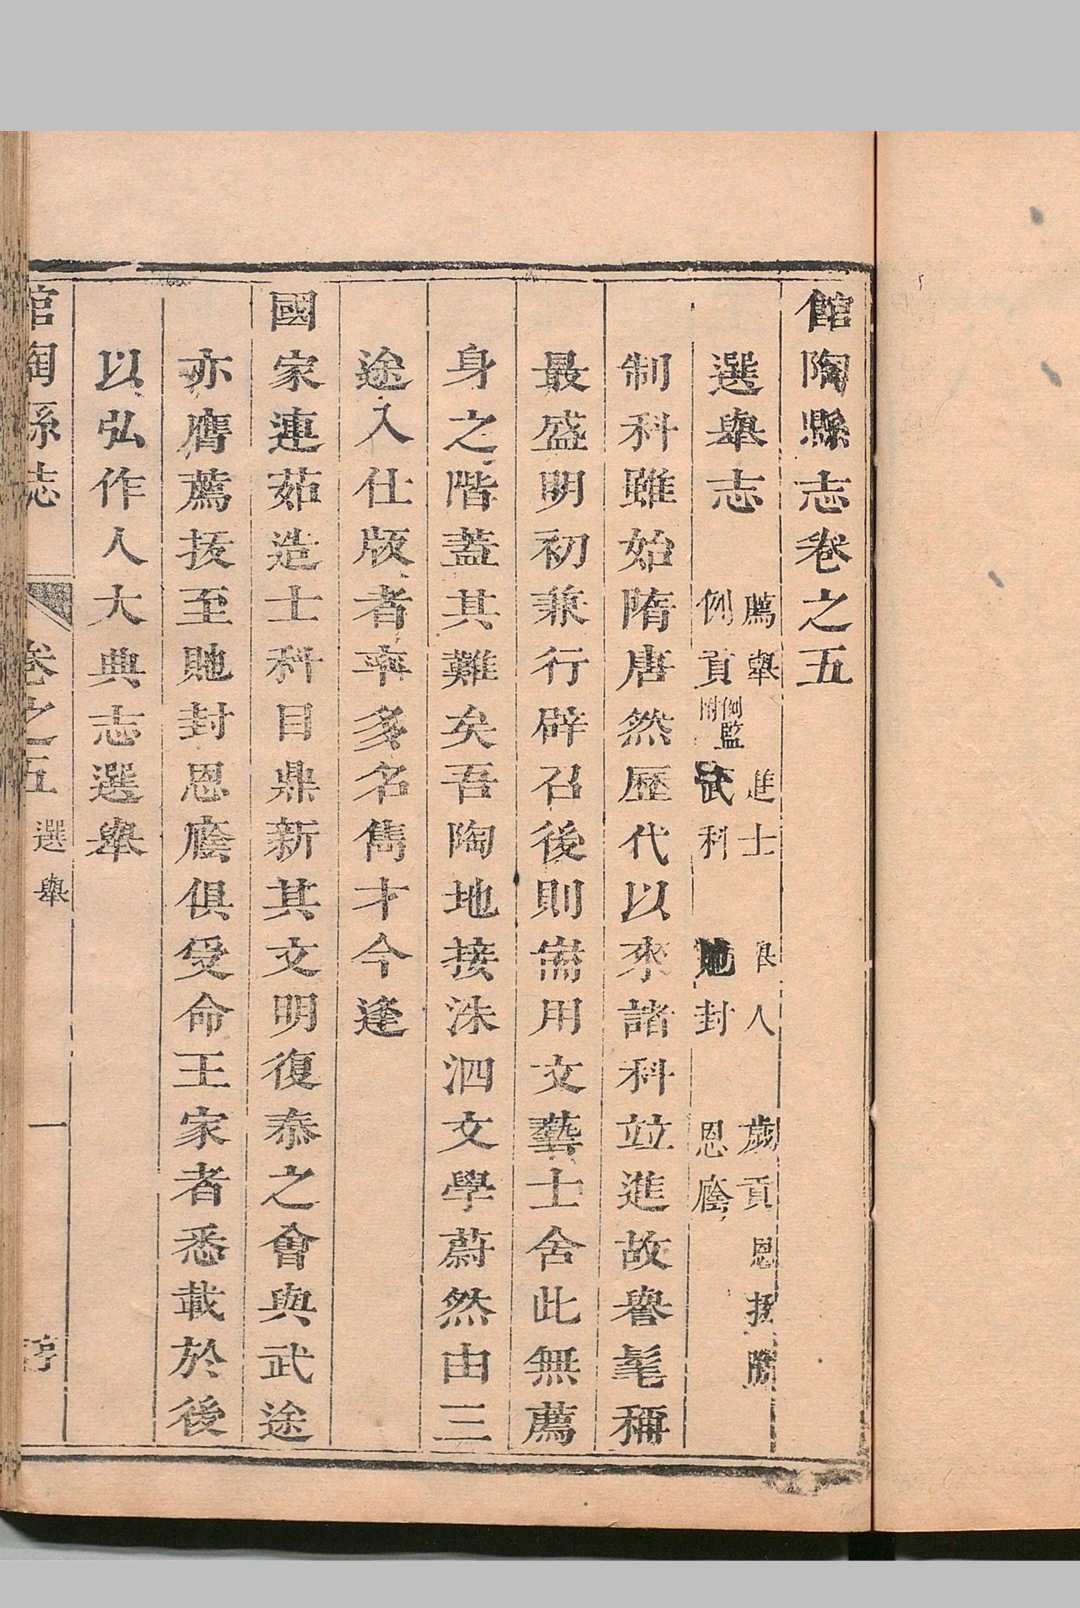 館陶縣志卷之五
選舉志
薦舉 進士 舉人 歲貢 恩拔 
例貢 例監附 武科 貤封 恩廕
制科雖始隋唐然歷代以來諸科竝進故譽髦稱
最盛明初兼行辟召後則耑用文藝士舍此無薦
身之階蓋其難矣吾陶地接洙泗文學蔚然由三
途入仕版者率多名雋才今逢
國家連茹造士科目鼎新其文明復泰之會與武途
亦膺薦拔至貤封恩廕俱受命王家者悉載於後
以弘作人大典志選舉
館陶縣誌 卷之五 選舉 一